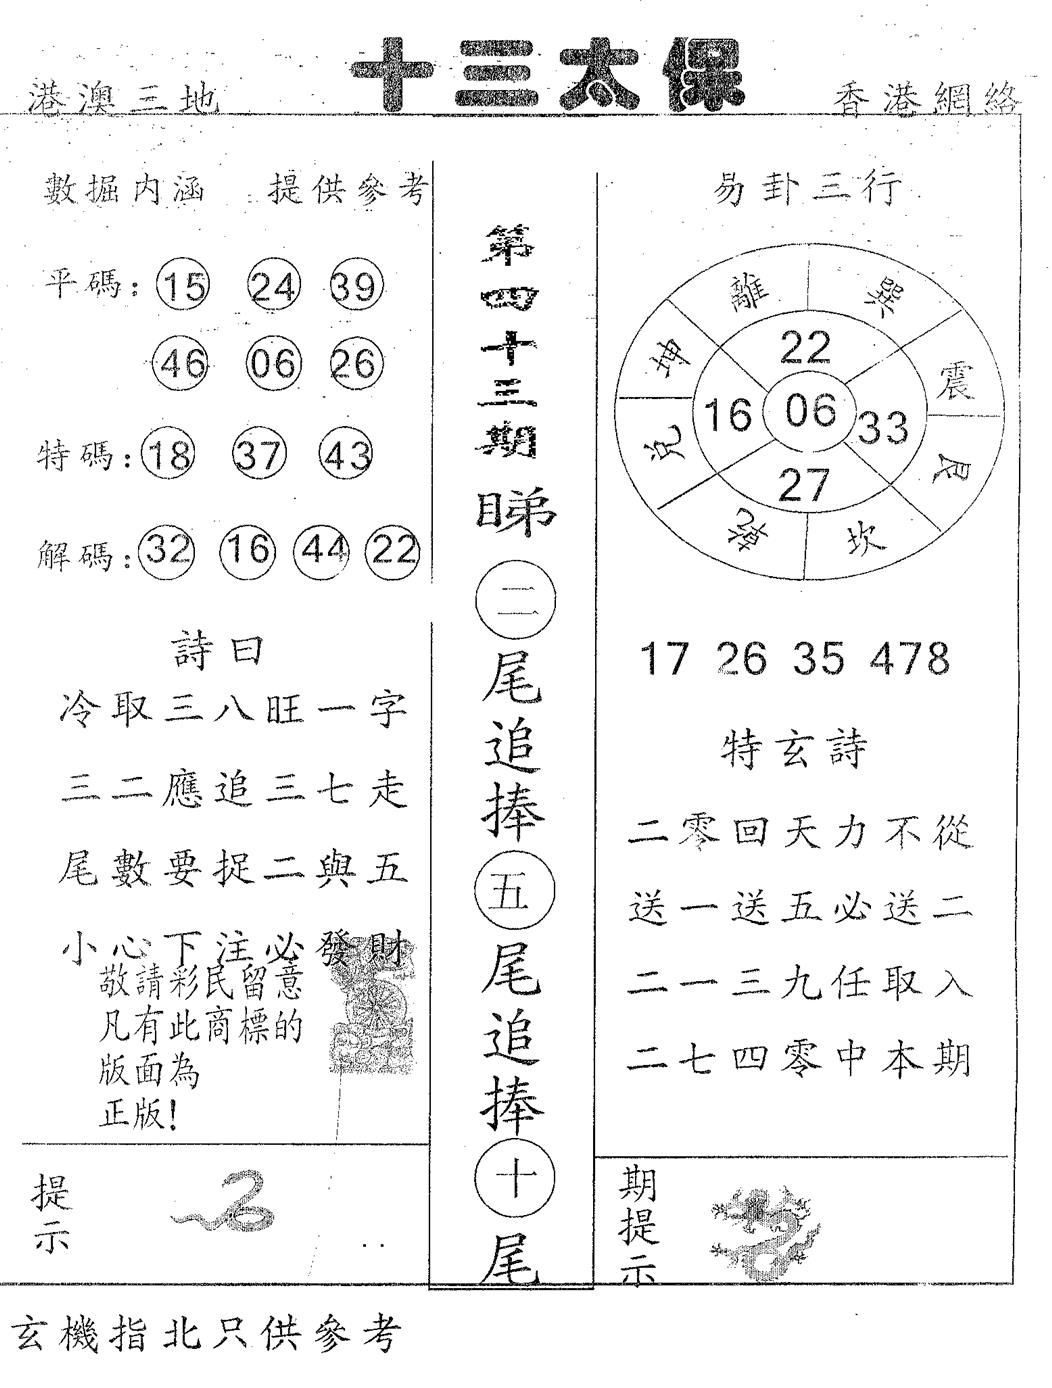 十三太保
港澳三地
香港網絡
數掘内涵 提供參考
平碼：15 24 39
46 06 26
特碼：18 37 43
解碼：32 16 44 22
詩曰
冷取三八旺一字
三二應追三七走
尾數要捉二與五
小心下注必發財
敬請彩民留意
凡有此商標的
版面為
正版!
提示
第四十三期
睇二尾追捧五尾追捧十尾
易卦三行
離 巽
坤 震
兌 艮
乾 坎
22
16 06 33
27
17 26 35 478
特玄詩
二零回天力不從
送一送五必送二
二一三九任取入
二七四零中本期
期提示
玄機指北只供參考